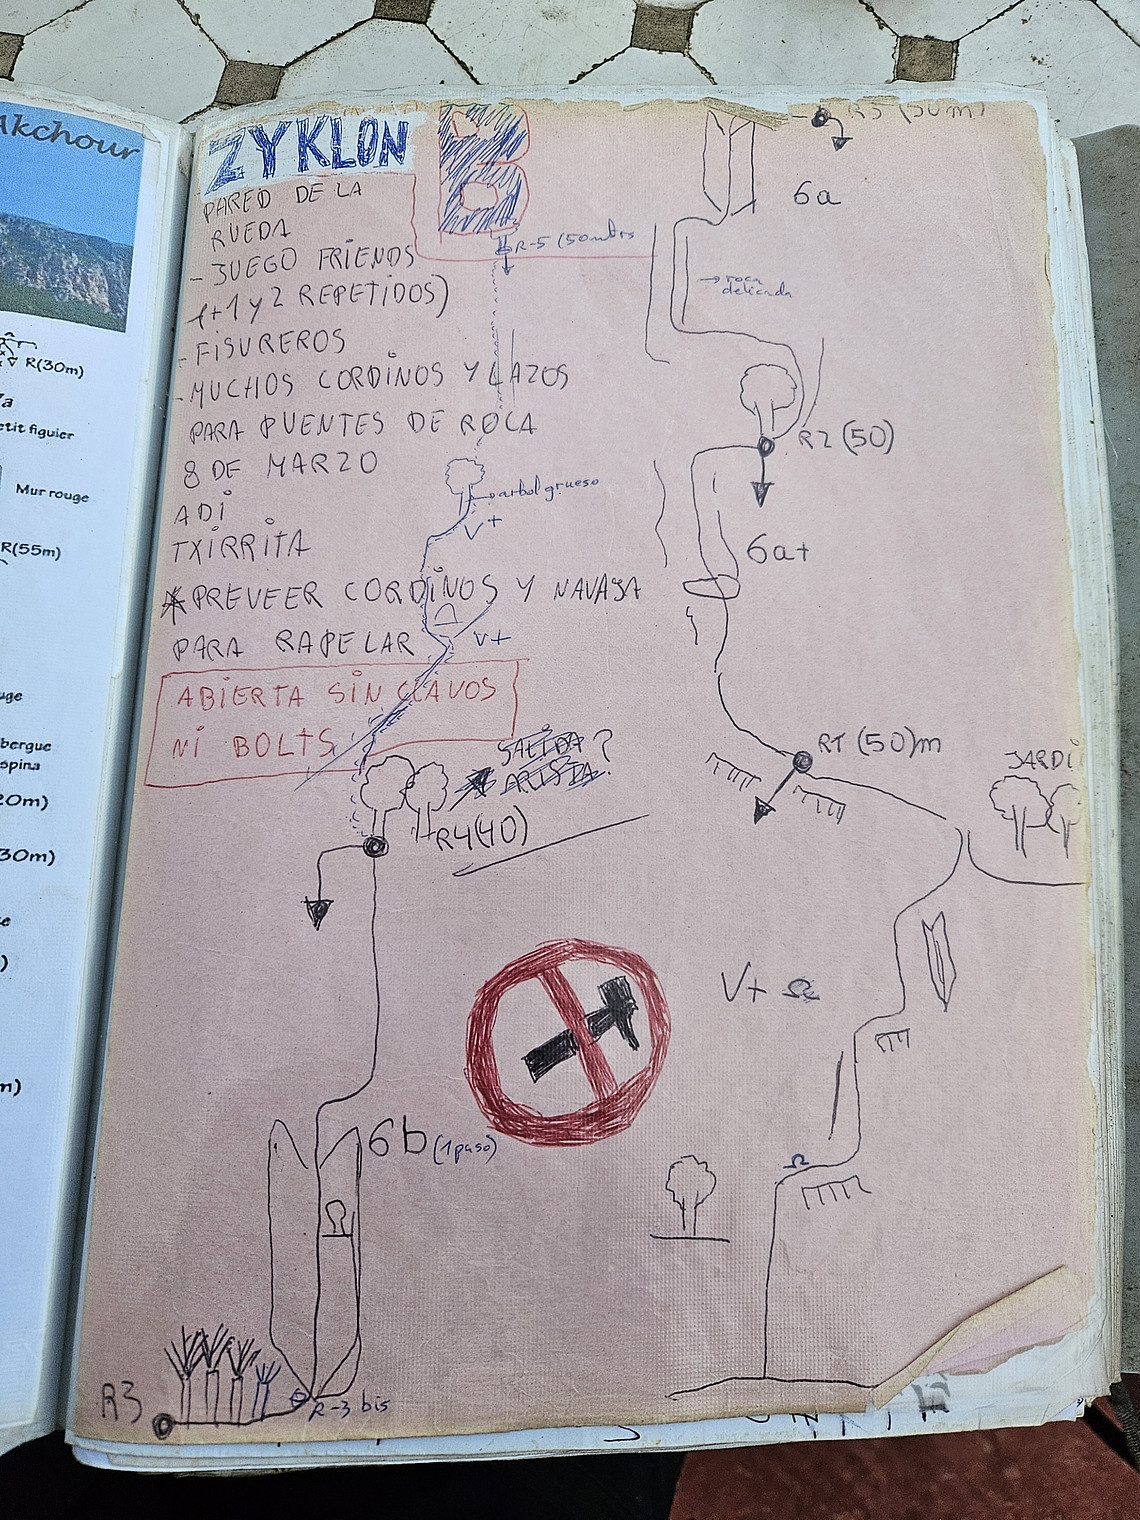 Akchour
R(30m)
7a
etit figuier
Mur rouge
R(55m)
uge
bergue
spina
20m)
30m)
e
)
m)
ZYKLON B
PARED DE LA
RUEDA
- JUEGO FRIENDS
(+1 y 2 REPETIDOS)
- FISUREROS
- MUCHOS CORDINOS Y LAZOS
PARA PUENTES DE ROCA
8 DE MARZO
ADI
TXIRRITA
* PREVEER CORDINOS Y NAVAJA
PARA RAPELAR
ABIERTA SIN CLAVOS
NI BOLTS
R-5 (50mtrs
arbol grueso
V+
V+
SALIDA ?
ARISTA?
R4(40)
6b (1 paso)
R3
R-3 bis
R3 (50m)
6a
roca
delicada
R2 (50)
6a+
R1 (50)m
JARDI
V+ Ω
Ω